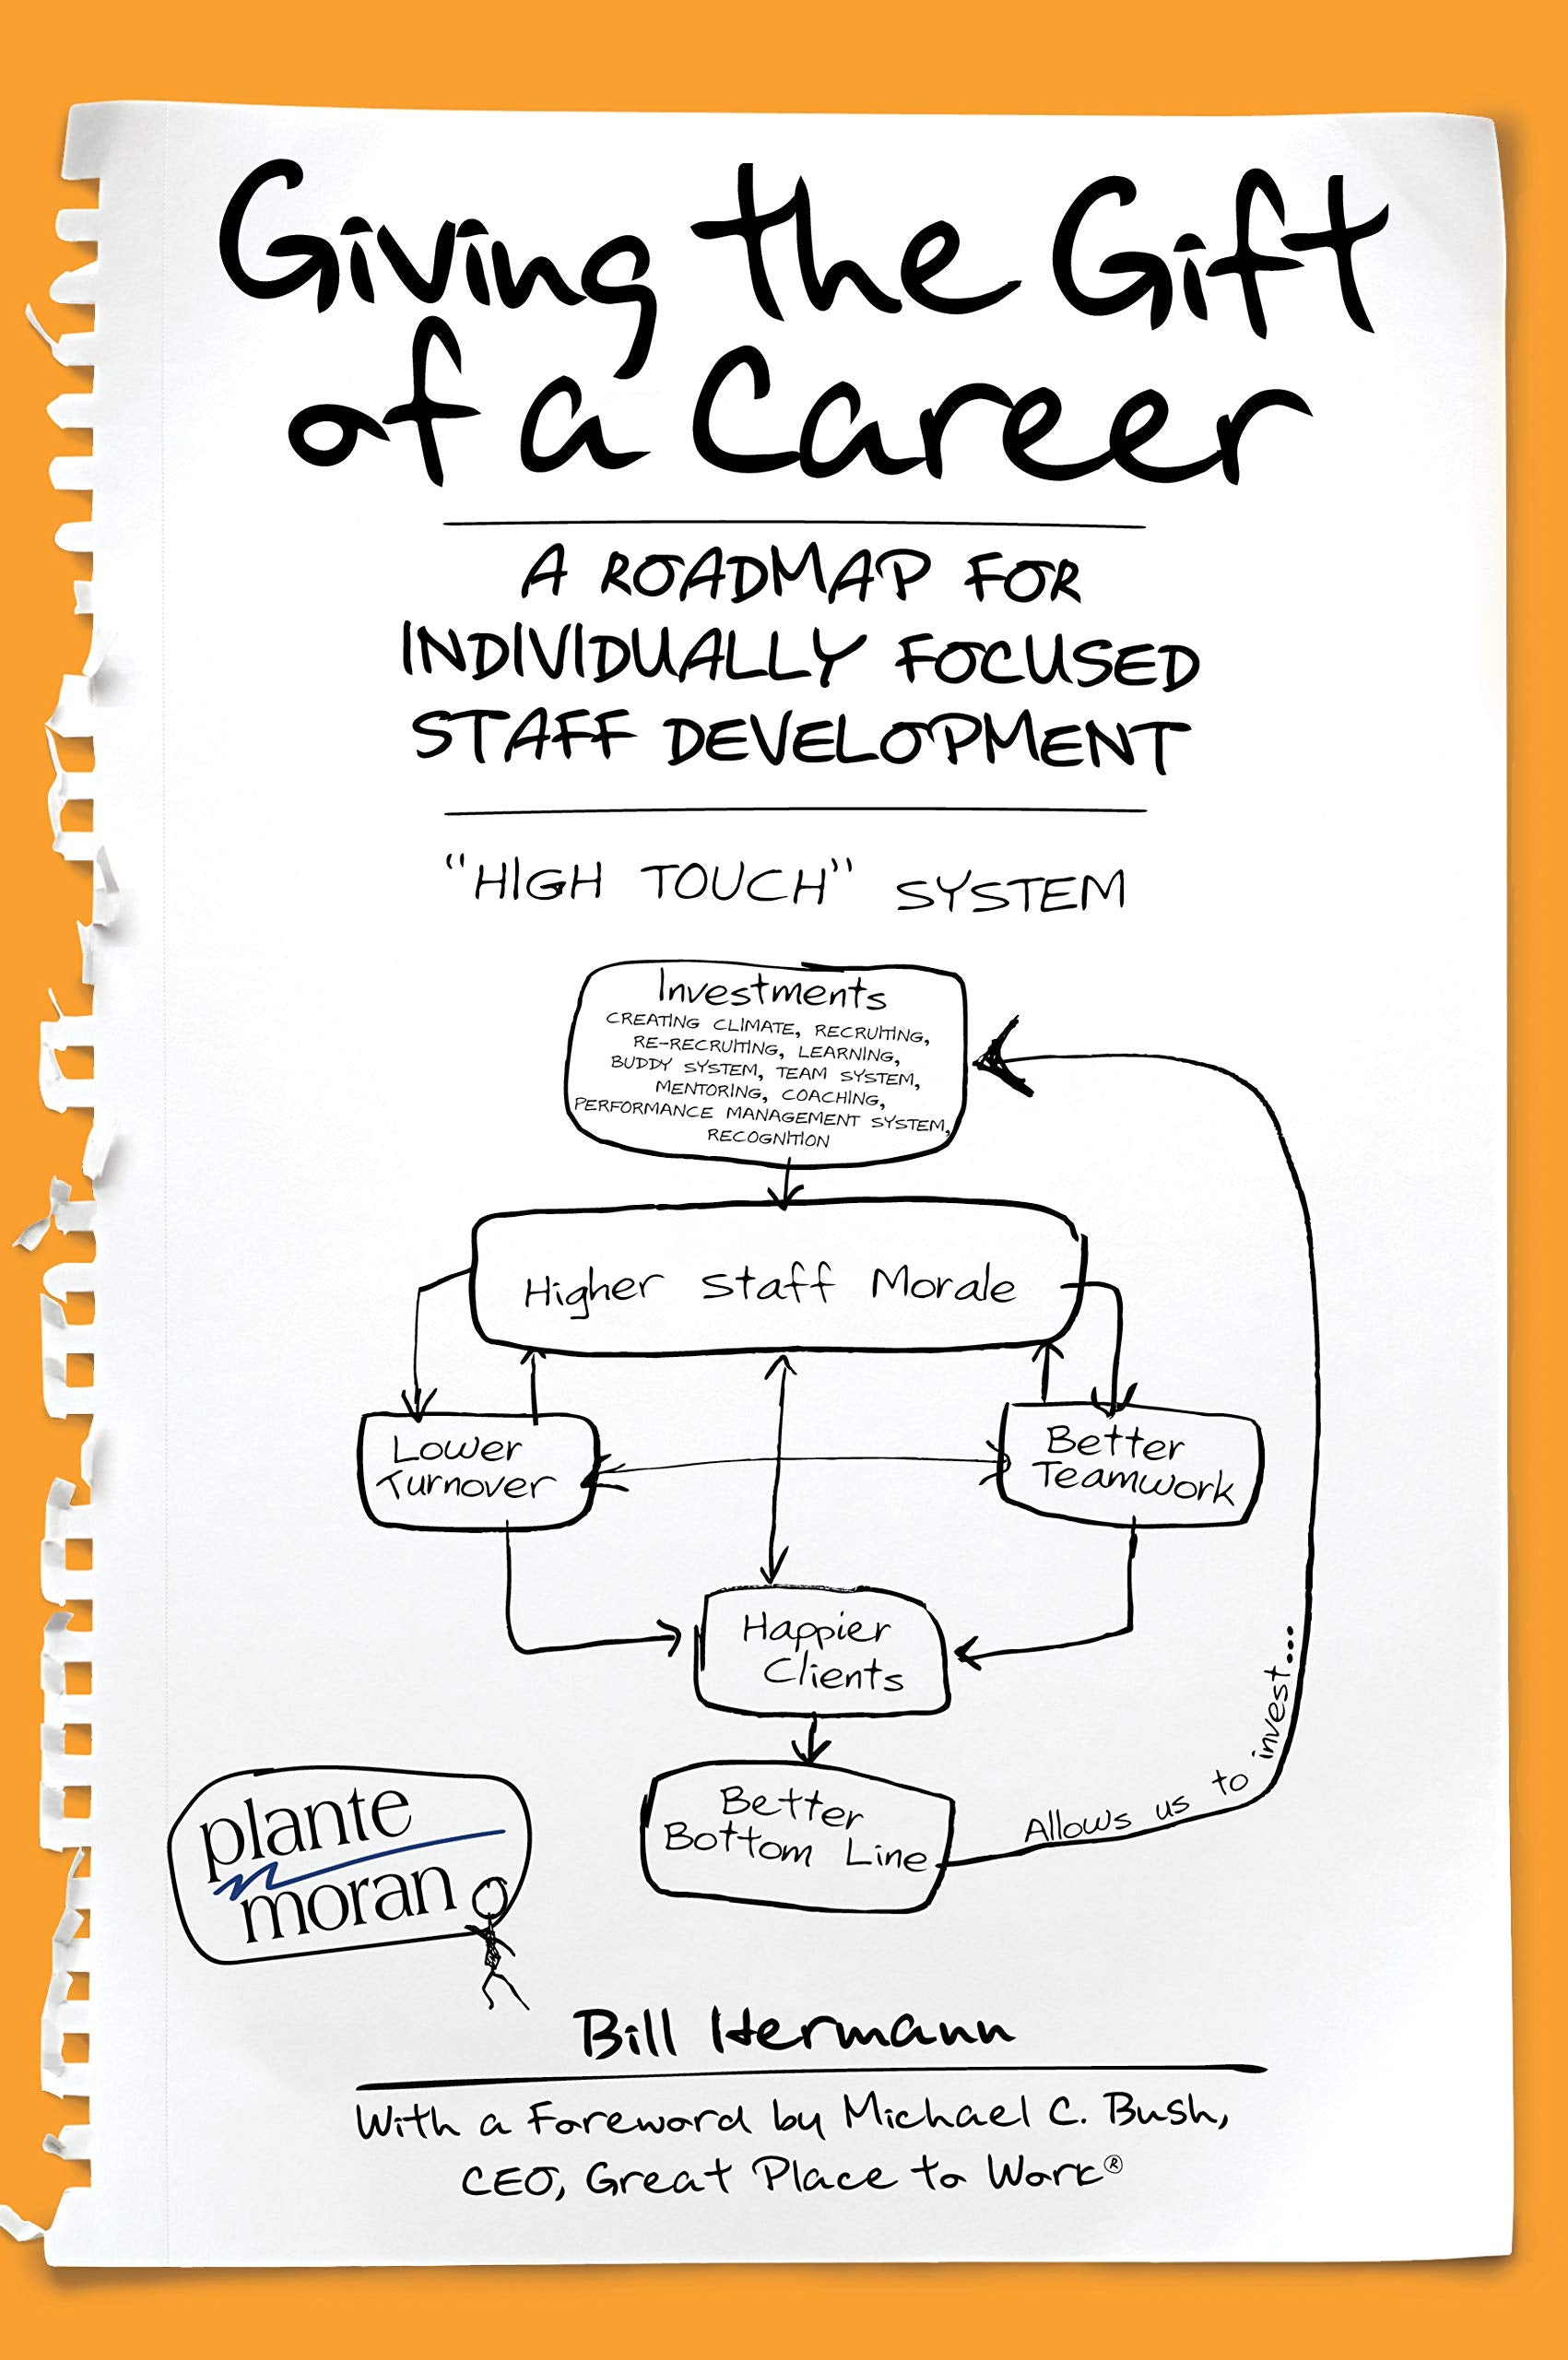 Giving the Gift
of a Career
A ROADMAP FOR
INDIVIDUALLY FOCUSED
STAFF DEVELOPMENT
"HIGH TOUCH" SYSTEM
Investments
CREATING CLIMATE, RECRUITING,
RE-RECRUITING, LEARNING,
BUDDY SYSTEM, TEAM SYSTEM,
MENTORING, COACHING,
PERFORMANCE MANAGEMENT SYSTEM,
RECOGNITION
Higher Staff Morale
Lower
Turnover
Better
Teamwork
Happier
Clients
Better
Bottom Line
Allows us to invest...
plante
moran
Bill Hermann
With a Foreword by Michael C. Bush,
CEO, Great Place to Work®